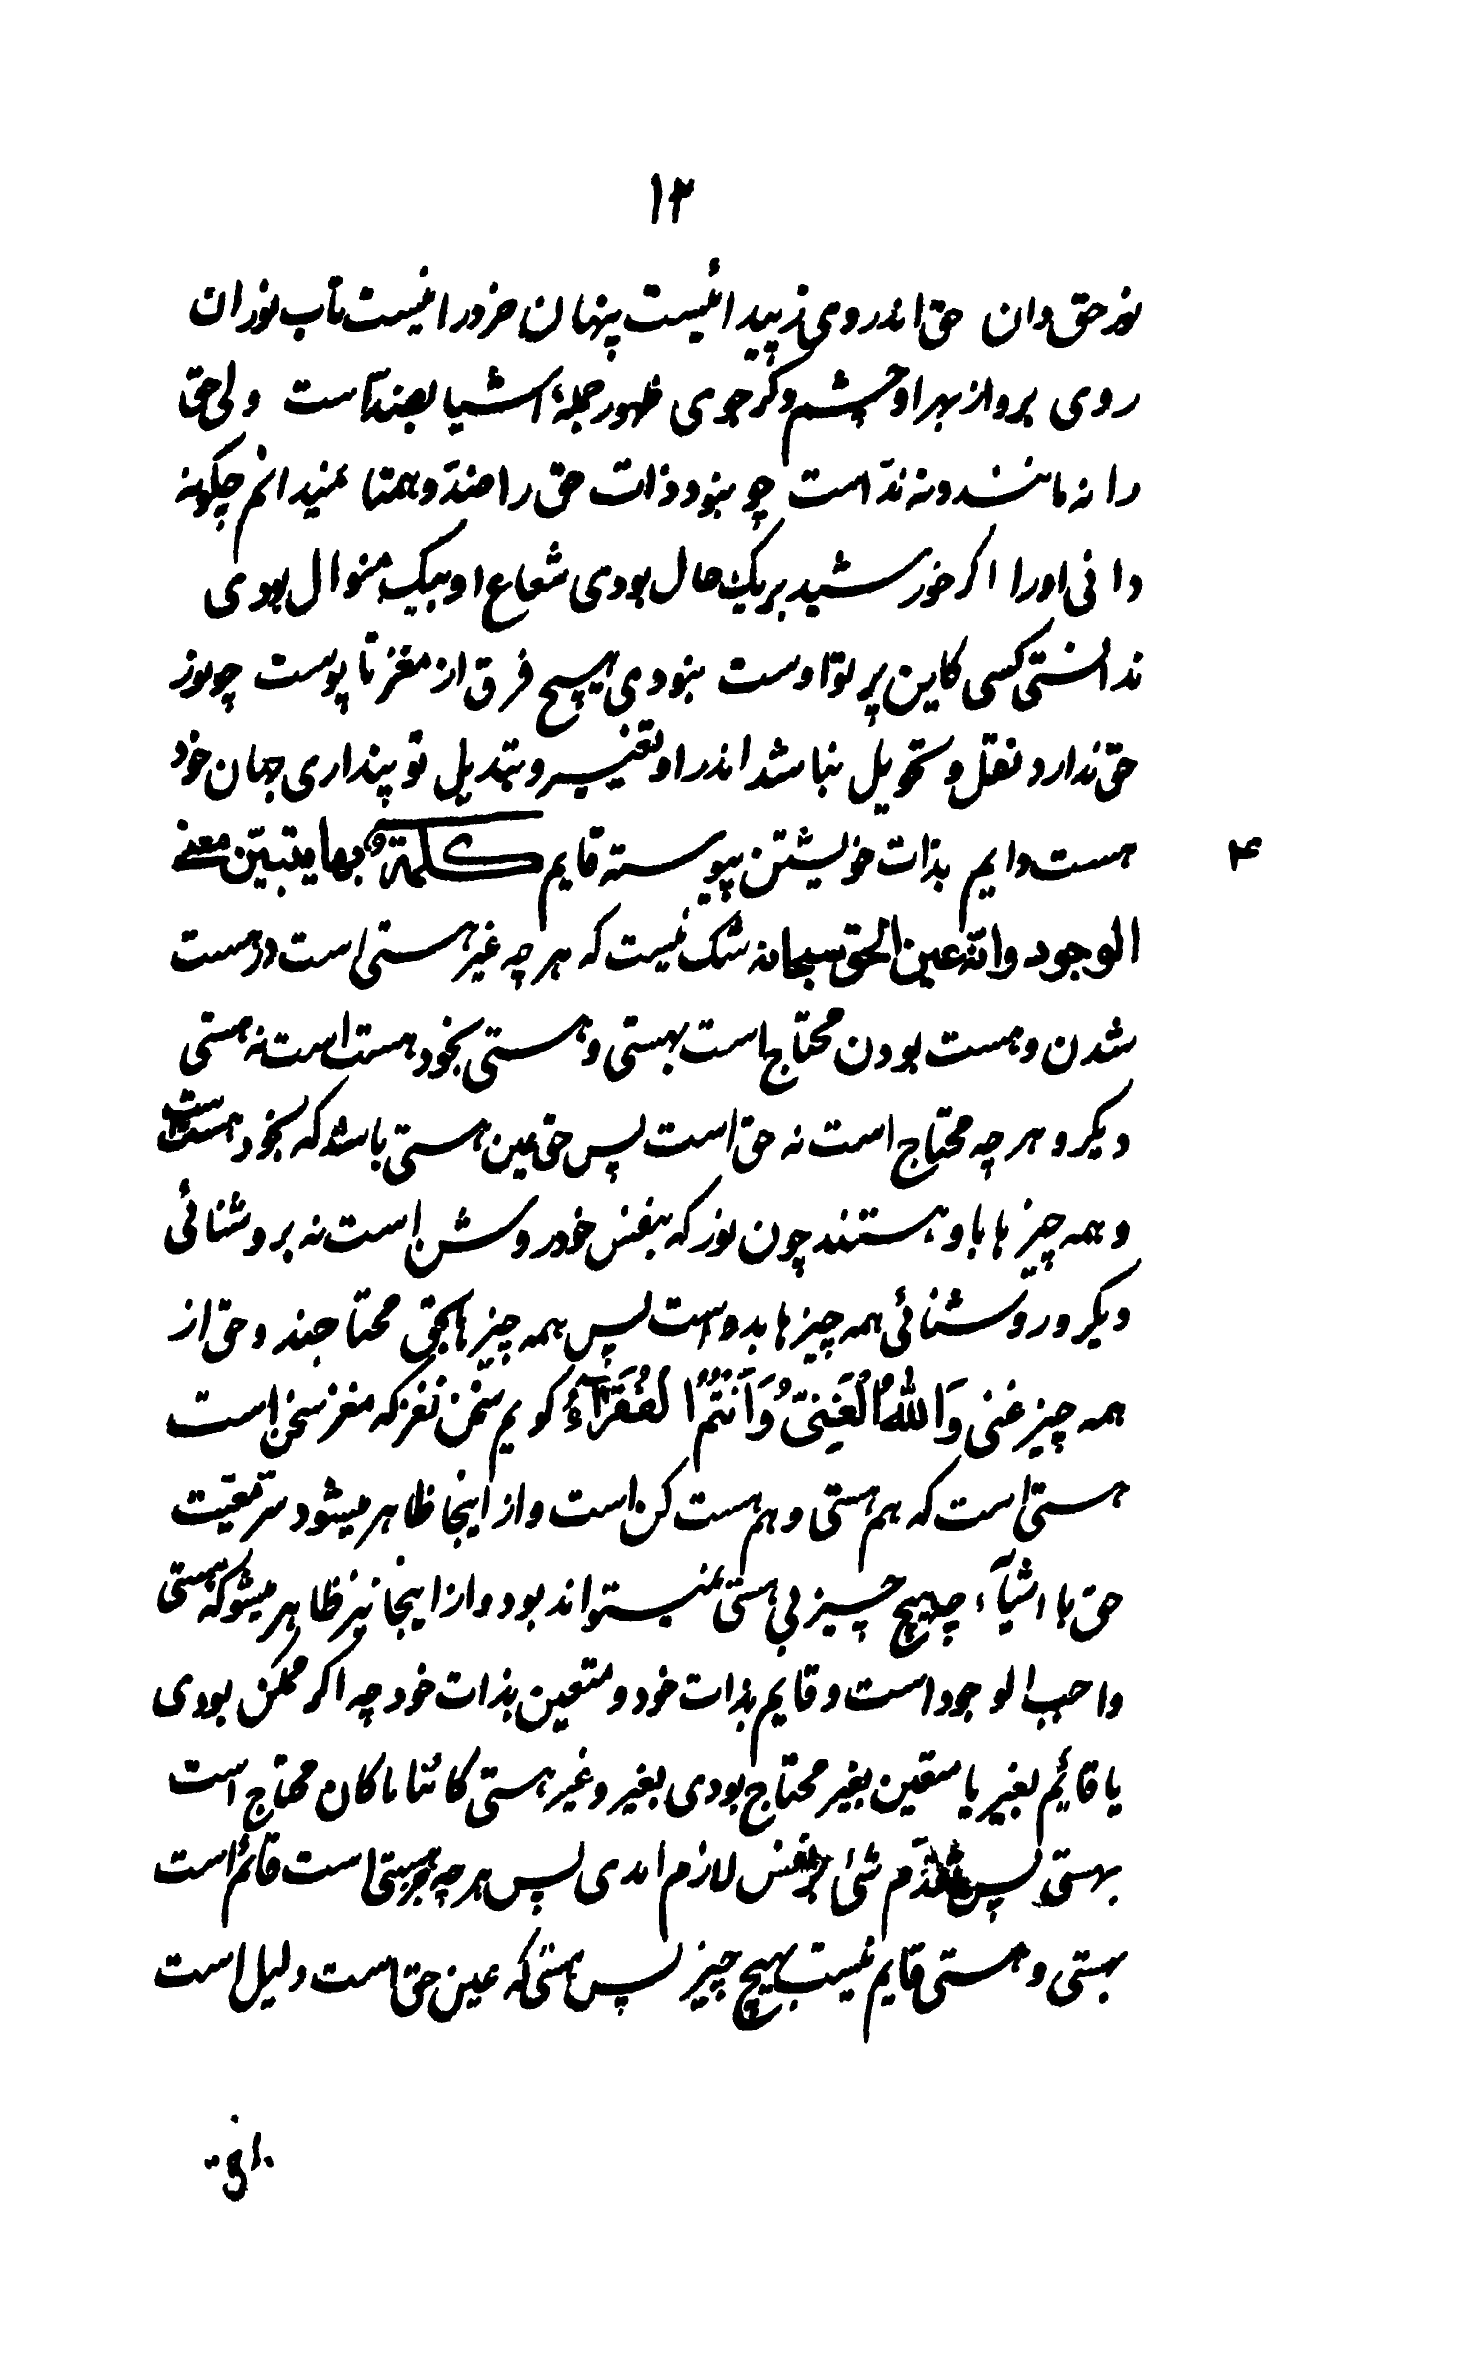 ۱۲
نور حق دان حق اندر وی ز پیدائیست پنهان خرد را نیست تاب نور ان
روی برو از بهر او چشم دگر جوی ظهور جملهٔ اشیا بضد است ولی حق
را نه مانند و نه ند است چو نبود ذات حق را ضد و همتا نمیدانم چگونه
دانی او را اگر خورشید بر یک حال بودی شعاع او بیک منوال بودی
ندانستی کسی کاین پرتو اوست نبودی هیچ فرق از مغز تا پوست چو نور
حق ندارد نقل و تحویل نباشد اندر او تغییر و تبدیل تو پنداری جهان خود
هست دایم بذات خویشتن پیوسته قایم کلمة بها یتبین معنی
۴
الوجود وانه عین الحق سبحانه شک نیست که هر چه غیر هستی است در هست
شدن و هست بودن محتاج است بهستی و هستی بخود هست است نه هستی
دیگر و هر چه محتاج است نه حق است پس حق عین هستی باشد که بخود هست است
و همه چیزها باو هستند چون نور که بنفس خود روشن است نه بروشنائی
دیگر و روشنائی همه چیزها بدو است پس همه چیزها بحق محتاجند و حق از
همه چیز غنی وَاللهُ الْغَنِیُّ وَاَنْتُمُ الْفُقَرَآءُ گویم سخن نغز که مغز سخن است
هستی است که هم هستی و هم هست کن است و از اینجا ظاهر میشود سر معیت
حق با اشیآء چه هیچ چیز بی هستی نمیتواند بود و از اینجا نیز ظاهر میشود که هستی
واجب الوجود است و قایم بذات خود و متعین بذات خود چه اگر ممکن بودی
یا قائم بغیر یا متعین بغیر محتاج بودی بغیر و غیر هستی کائنا ما کان محتاج است
بهستی پس تقدم شئ بر نفس لازم امدی پس هر چه جز هستی است قائم است
بهستی و هستی قایم نیست بهیچ چیز پس هستی که عین حق است دلیل است